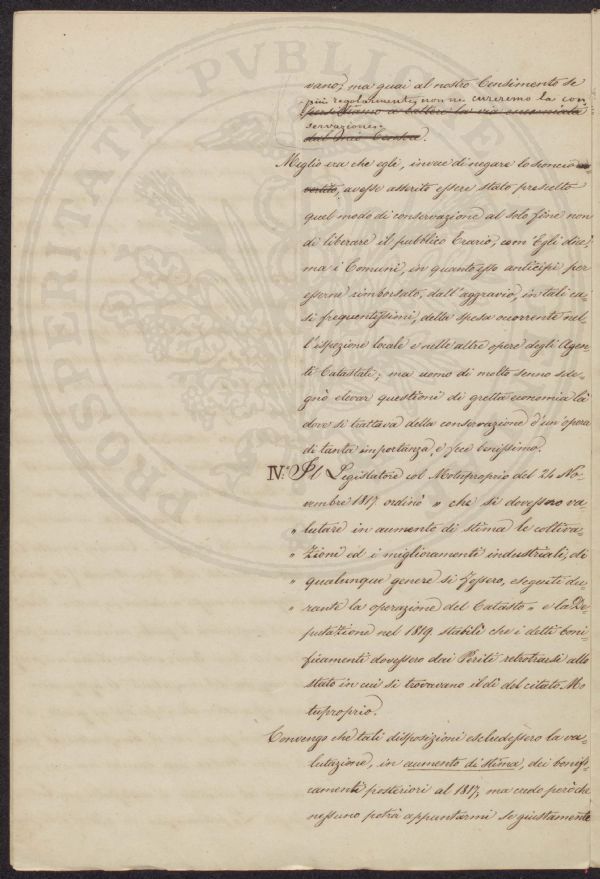 vano; ma guai al nostro Censimento se
più regolarmente, non ne cureremo la con
servazione.
Meglio era che egli, invece di negare lo sconcio
avesse asserito essere stato prescelto
quel modo di conservazione al solo fine non
di liberare il pubblico Erario, com'Egli dice,
ma i Comuni, in quanto esso anticipi per
esserne rimborsato, dall'aggravio, in tali ca-
si frequentissimi, della spesa occorrente nel-
l'ispezione locale e nelle altre opere degli Agen-
ti Catastali; ma uomo di molto senno sde-
gnò elevar questioni di gretta economia là
dove si trattava della conservazione d'un'opera
di tanta importanza, e fece benissimo.
IV.° Il Legislatore col Motuproprio del 24 No-
vembre 1817 ordinò „ che si dovessero va-
„ lutare in aumento di stima le coltiva-
„ zioni ed i miglioramenti industriali, di
„ qualunque genere si fossero, eseguiti du-
„ rante la operazione del Catasto „ e la De-
putazione nel 1819 stabilì che i detti boni-
ficamenti dovessero dai Periti retrotrarsi allo
stato in cui si trovavano il dì del citato Mo-
tuproprio.
Convengo che tali disposizioni escludessero la va-
lutazione, in aumento di stima, dei bonifi-
camenti posteriori al 1817; ma credo però che
nessuno potrà appuntarmi se giustamente
PROSPERITATI PVBLICAE